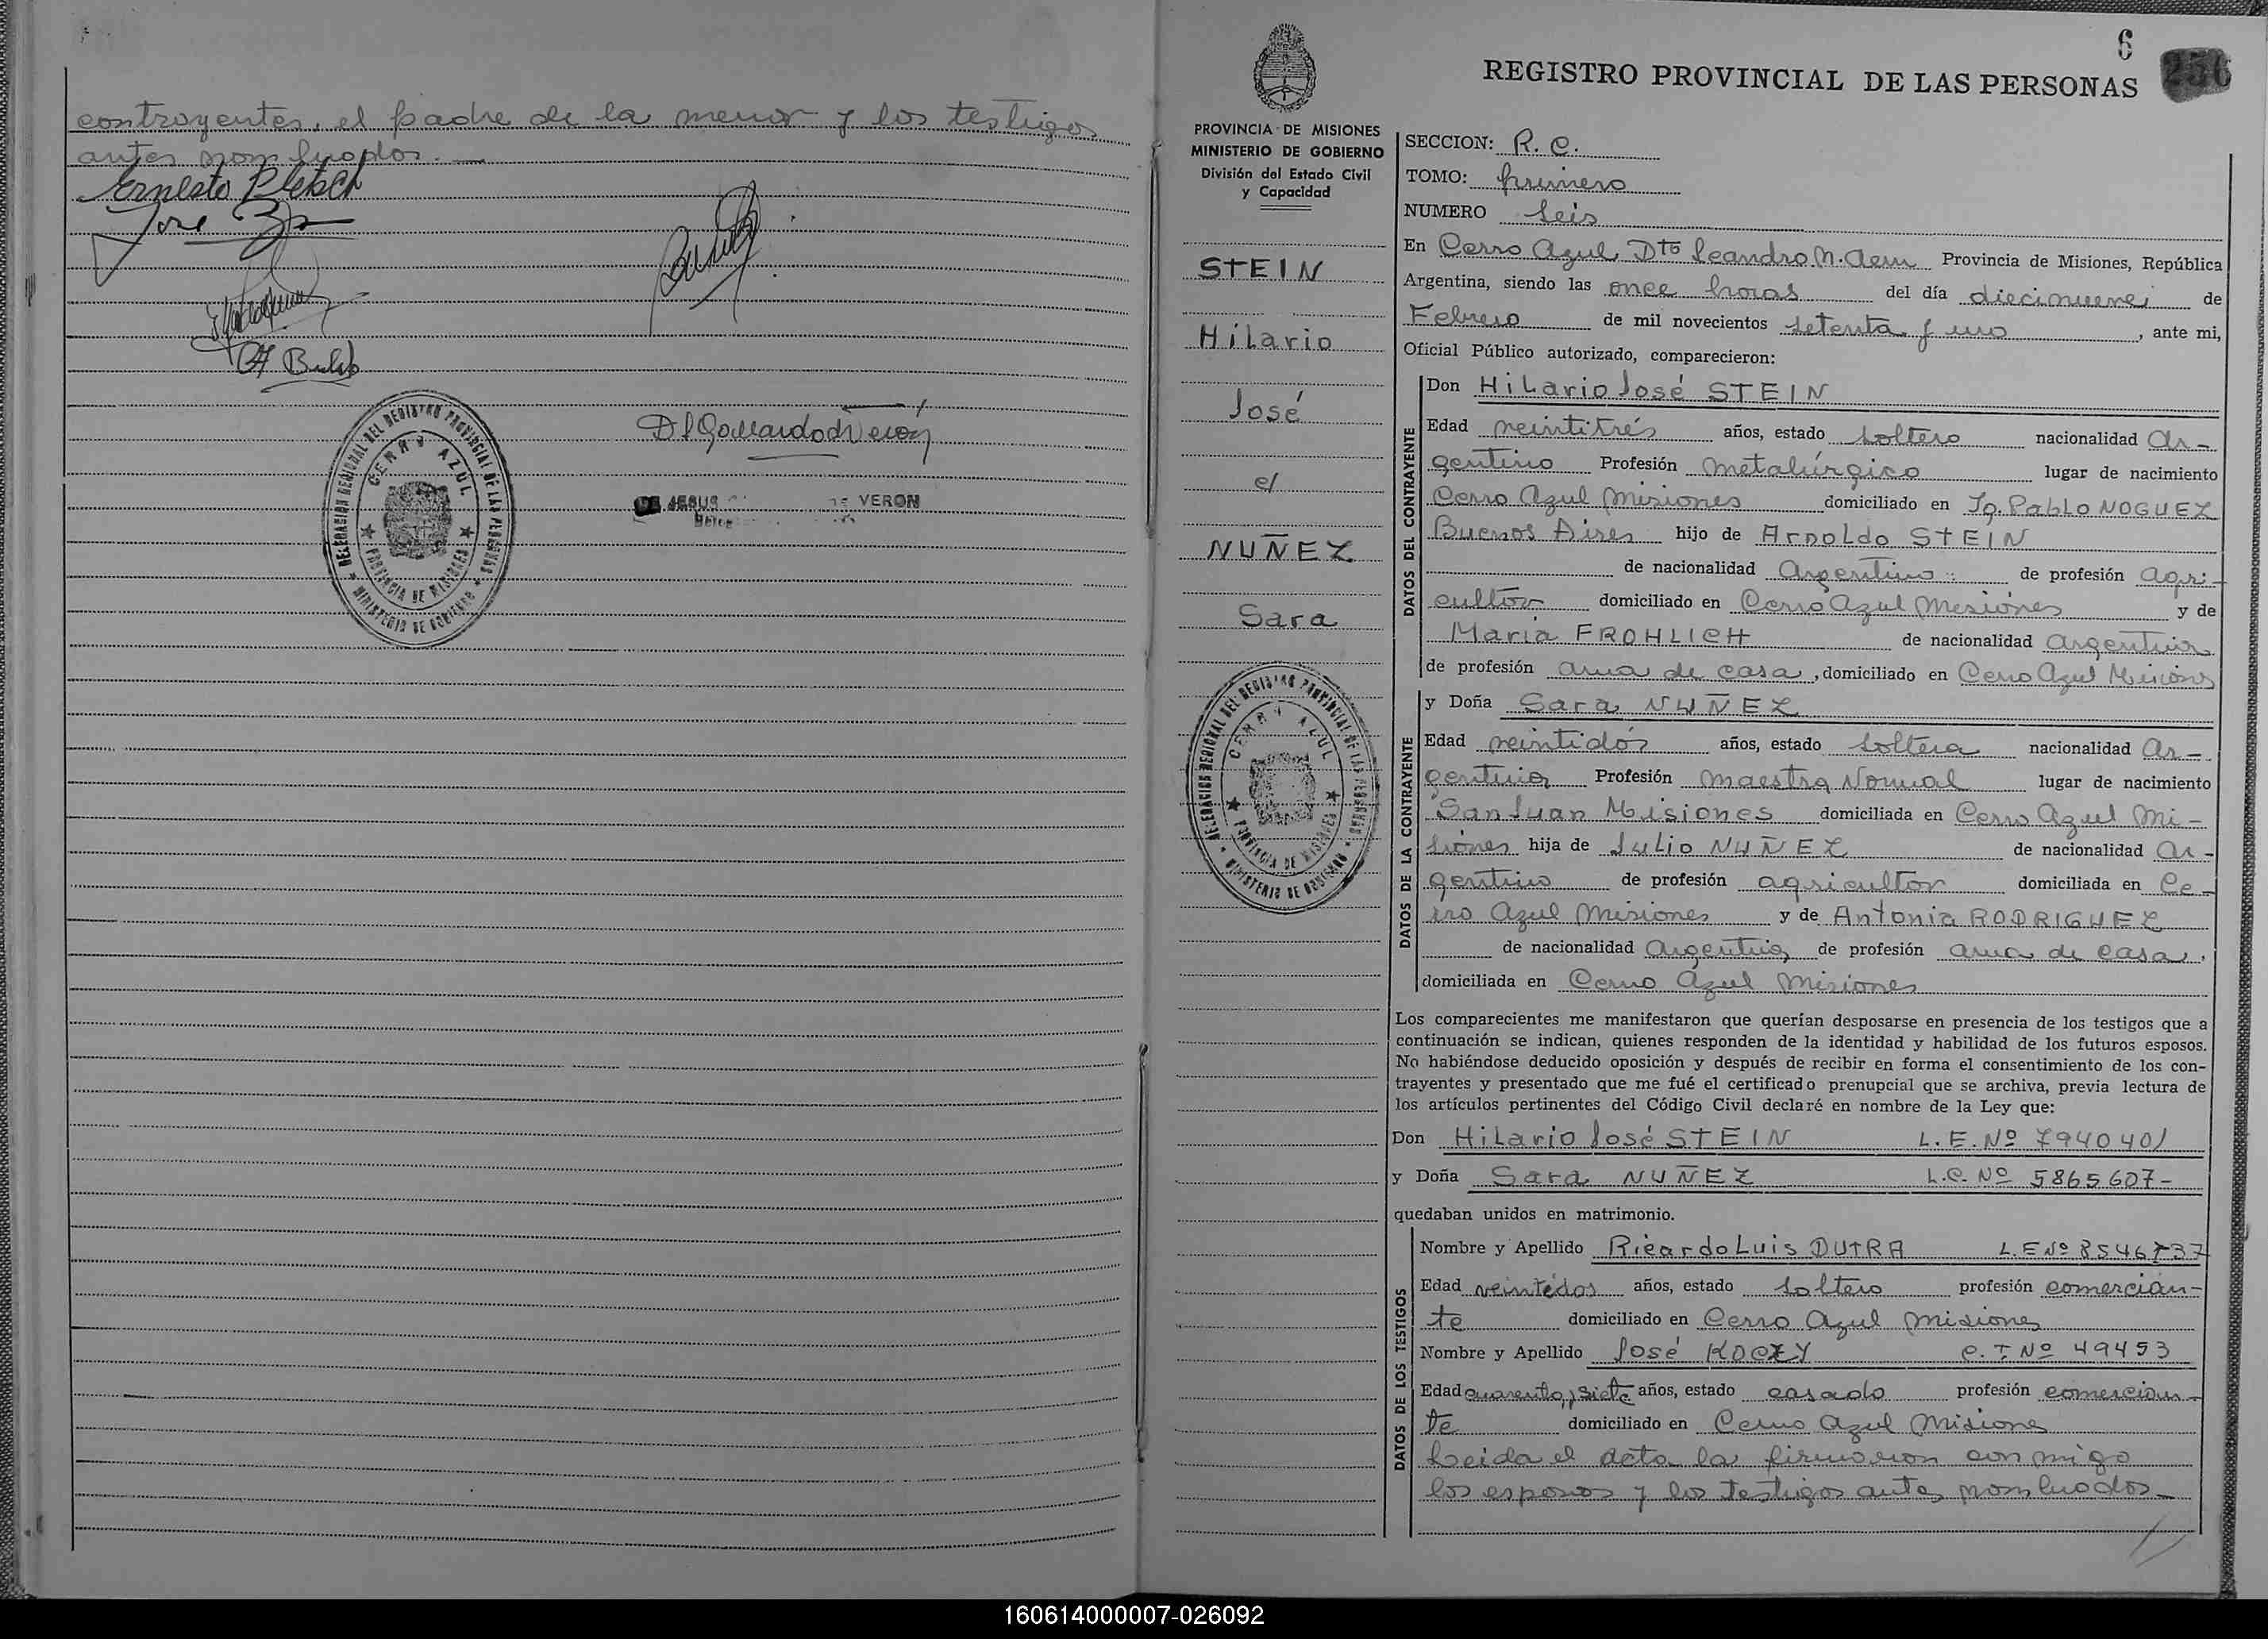 contrayentes, el padre de la menor y los testigos
antes nombrados.
Ernesto Pletsch
José
DELEGACION REGIONAL DEL REGISTRO PROVINCIAL DE LAS PERSONAS
CERRO AZUL
PROVINCIA DE MISIONES
MINISTERIO DE GOBIERNO
JESUS
VERON
6
256
REGISTRO PROVINCIAL DE LAS PERSONAS
PROVINCIA DE MISIONES
MINISTERIO DE GOBIERNO
División del Estado Civil
y Capacidad
STEIN
Hilario
José
c/
NUÑEZ
Sara
DELEGACION REGIONAL DEL REGISTRO PROVINCIAL DE LAS PERSONAS
CERRO AZUL
PROVINCIA DE MISIONES
MINISTERIO DE GOBIERNO
SECCION: R. C.
TOMO: primero
NUMERO Seis
En Cerro Azul, Dto Leandro N. Alem Provincia de Misiones, República
Argentina, siendo las once horas del día diecinueve de
Febrero de mil novecientos setenta y uno, ante mi,
Oficial Público autorizado, comparecieron:
DATOS DEL CONTRAYENTE
Don Hilario José STEIN
Edad veintitrés años, estado soltero nacionalidad Ar-
gentino Profesión metalúrgico lugar de nacimiento
Cerro Azul Misiones domiciliado en Ig. Pablo NOGUEZ
Buenos Aires hijo de Arnoldo STEIN
de nacionalidad Argentino de profesión agri-
cultor domiciliado en Cerro Azul Misiones y de
María FROHLICH de nacionalidad Argentina
de profesión ama de casa, domiciliado en Cerro Azul Misiones
DATOS DE LA CONTRAYENTE
y Doña Sara NUÑEZ
Edad veintidós años, estado soltera nacionalidad Ar-
gentina Profesión maestra Normal lugar de nacimiento
San Juan Misiones domiciliada en Cerro Azul Mi-
siones hija de Julio NUÑEZ de nacionalidad Ar-
gentino de profesión agricultor domiciliada en Ce-
rro Azul Misiones y de Antonia RODRIGUEZ
de nacionalidad Argentina de profesión ama de casa,
domiciliada en Cerro Azul Misiones
Los comparecientes me manifestaron que querían desposarse en presencia de los testigos que a
continuación se indican, quienes responden de la identidad y habilidad de los futuros esposos.
No habiéndose deducido oposición y después de recibir en forma el consentimiento de los con-
trayentes y presentado que me fué el certificado prenupcial que se archiva, previa lectura de
los artículos pertinentes del Código Civil declaré en nombre de la Ley que:
Don Hilario José STEIN L.E. Nº 7940401
y Doña Sara NUÑEZ L.C. Nº 5865607-
quedaban unidos en matrimonio.
DATOS DE LOS TESTIGOS
Nombre y Apellido Ricardo Luis DUTRA L.E Nº 8546737
Edad veintidos años, estado soltero profesión comercian-
te domiciliado en Cerro Azul Misiones
Nombre y Apellido José KOCZY C. I. Nº 49453
Edad cuarenta y siete años, estado casado profesión comercian-
te domiciliado en Cerro Azul Misiones
Leida el acta la firmaron conmigo
los esposos y los testigos antes nombrados-
160614000007-026092